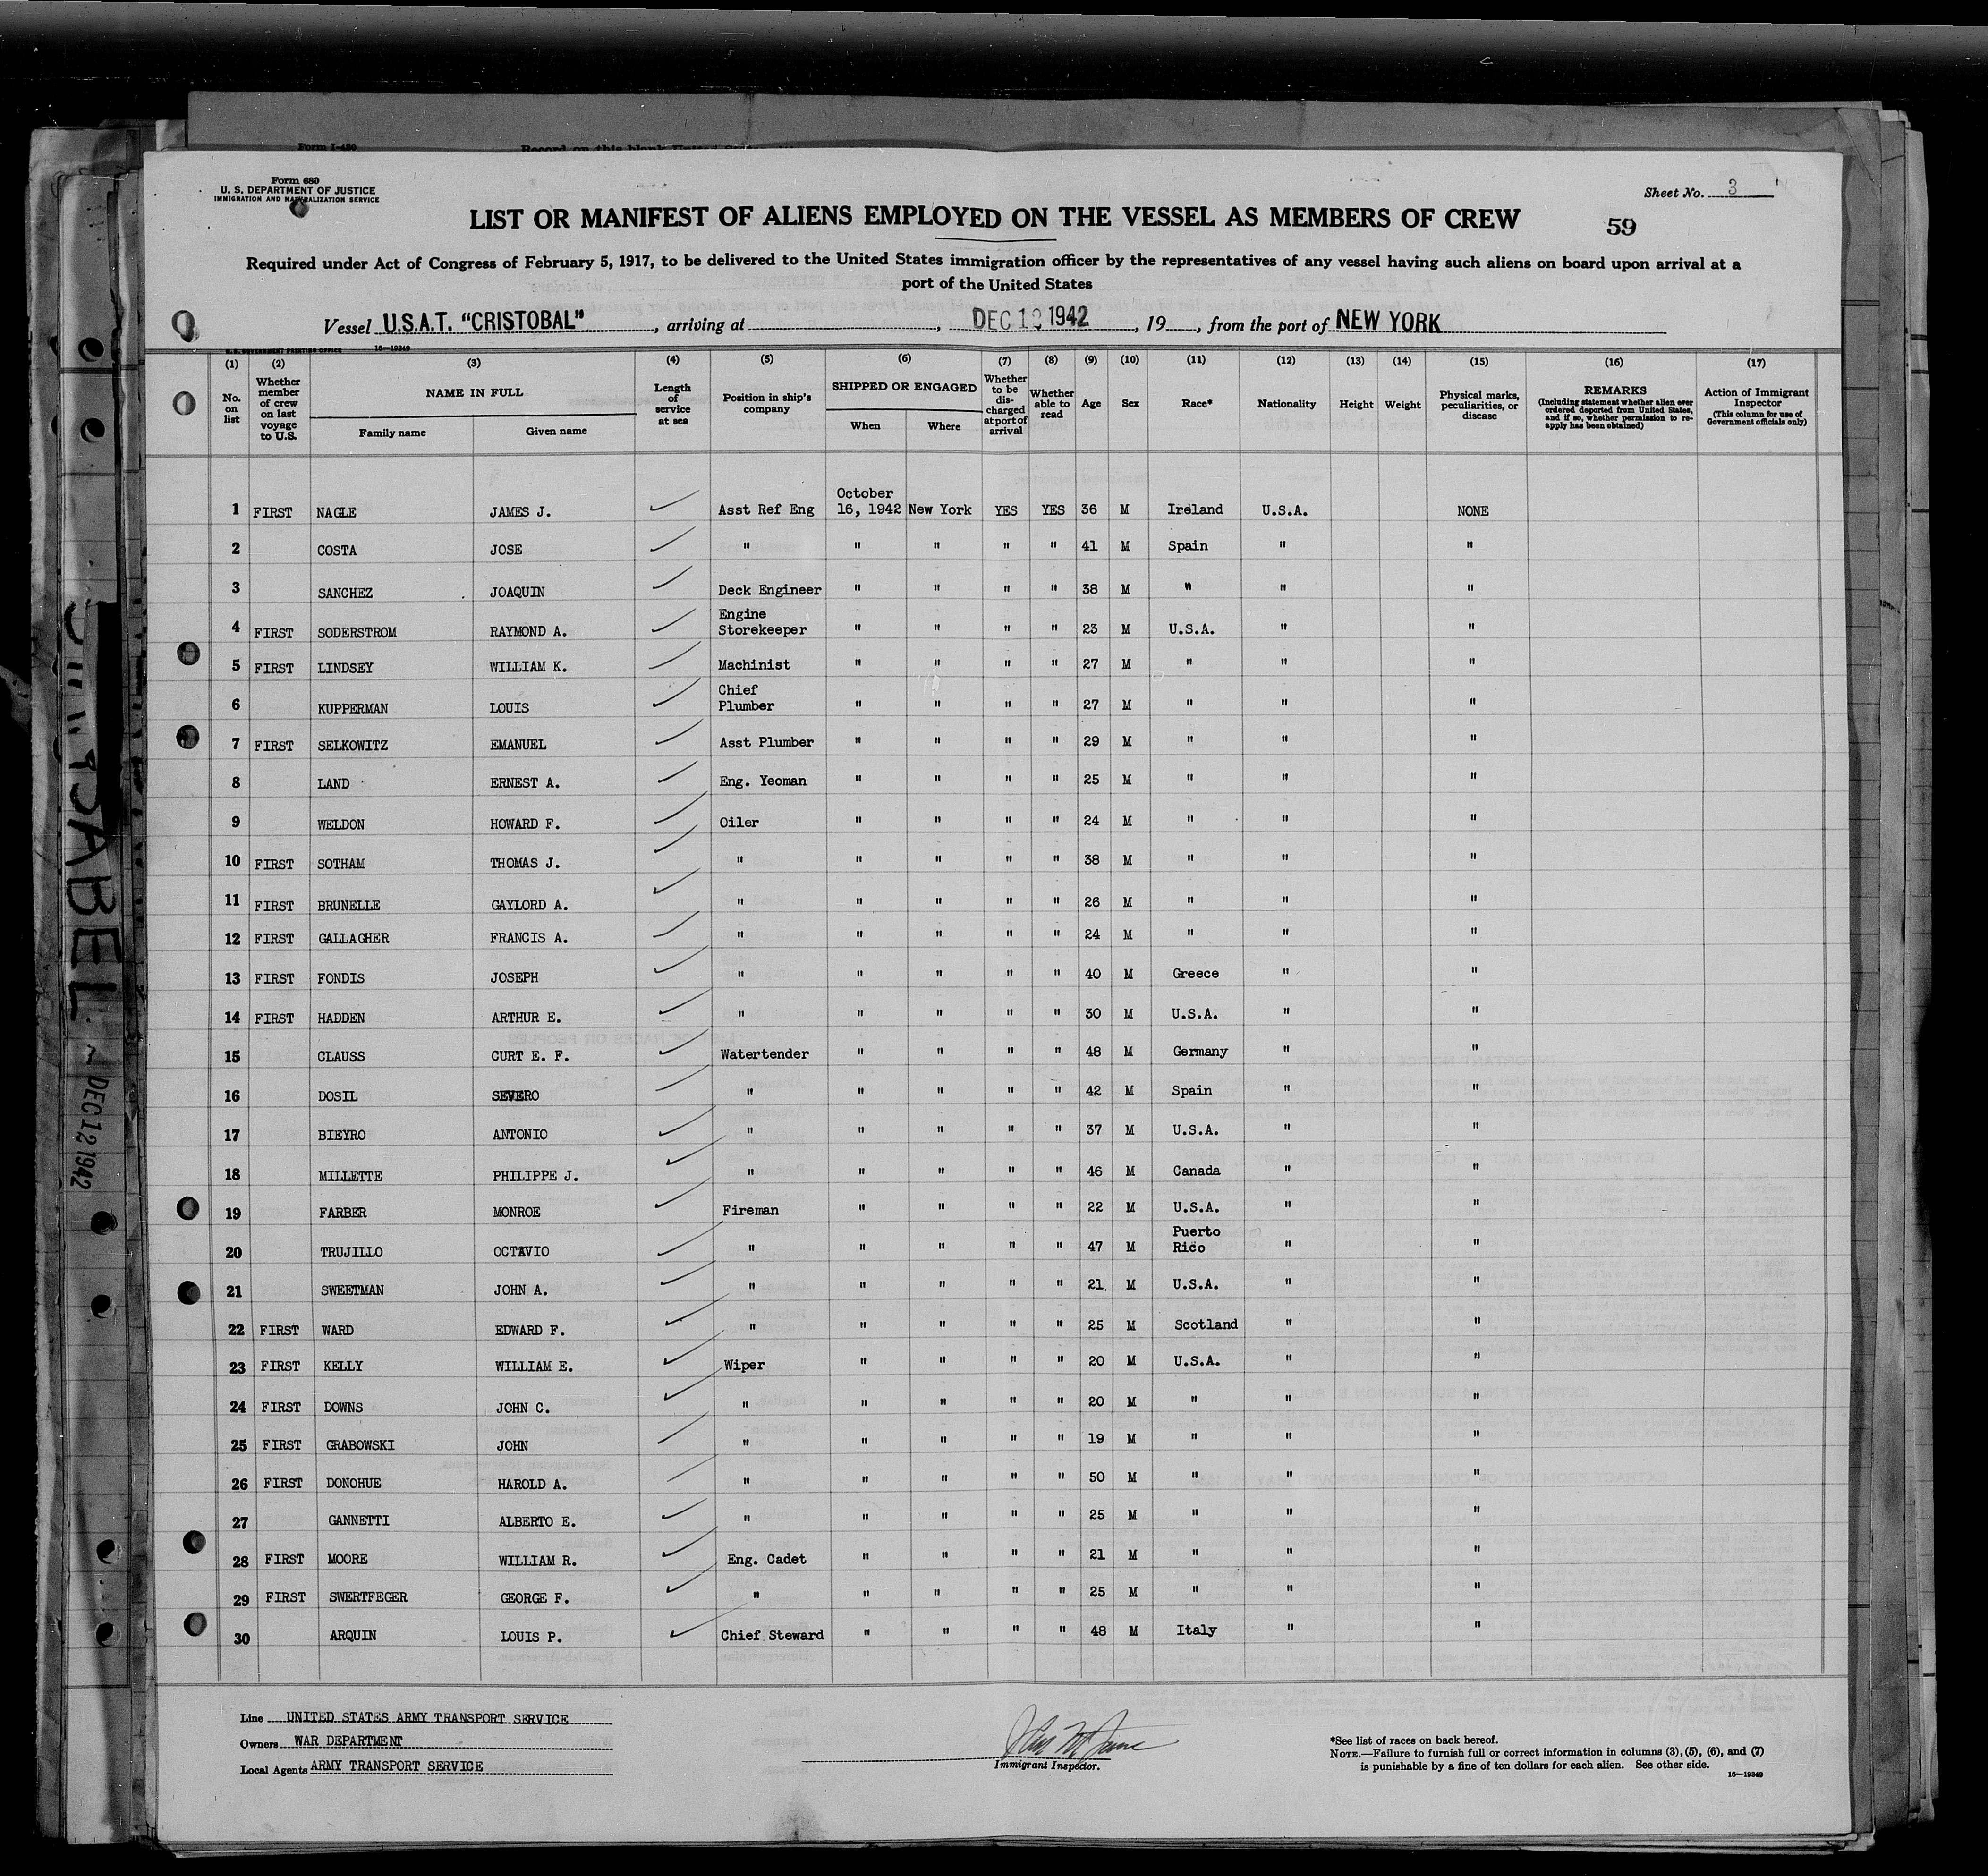 Form I-480
Form 680
U. S. DEPARTMENT OF JUSTICE
IMMIGRATION AND NATURALIZATION SERVICE
Sheet No. 3
LIST OR MANIFEST OF ALIENS EMPLOYED ON THE VESSEL AS MEMBERS OF CREW
59
Required under Act of Congress of February 5, 1917, to be delivered to the United States immigration officer by the representatives of any vessel having such aliens on board upon arrival at a
port of the United States
Vessel U.S.A.T. "CRISTOBAL", arriving at , DEC 1 1942, 19 , from the port of NEW YORK
U.S. GOVERNMENT PRINTING OFFICE 16—19349
(1) (2) (3) (4) (5) (6) (7) (8) (9) (10) (11) (12) (13) (14) (15) (16) (17)
No. on list
Whether member of crew on last voyage to U.S.
NAME IN FULL
Family name Given name
Length of service at sea
Position in ship's company
SHIPPED OR ENGAGED
When Where
Whether to be discharged at port of arrival
Whether able to read
Age
Sex
Race*
Nationality
Height
Weight
Physical marks, peculiarities, or disease
REMARKS
(Including statement whether alien ever ordered deported from United States, and if so, whether permission to reapply has been obtained)
Action of Immigrant Inspector
(This column for use of Government officials only)
1 FIRST NAGLE JAMES J. Asst Ref Eng October 16, 1942 New York YES YES 36 M Ireland U.S.A. NONE
2 COSTA JOSE " " " " " 41 M Spain " "
3 SANCHEZ JOAQUIN Deck Engineer " " " " 38 M " " "
4 FIRST SODERSTROM RAYMOND A. Engine Storekeeper " " " " 23 M U.S.A. " "
5 FIRST LINDSEY WILLIAM K. Machinist " " " " 27 M " " "
6 KUPPERMAN LOUIS Chief Plumber " " " " 27 M " " "
7 FIRST SELKOWITZ EMANUEL Asst Plumber " " " " 29 M " " "
8 LAND ERNEST A. Eng. Yeoman " " " " 25 M " " "
9 WELDON HOWARD F. Oiler " " " " 24 M " " "
10 FIRST SOTHAM THOMAS J. " " " " " 38 M " " "
11 FIRST BRUNELLE GAYLORD A. " " " " " 26 M " " "
12 FIRST GALLAGHER FRANCIS A. " " " " " 24 M " " "
13 FIRST FONDIS JOSEPH " " " " " 40 M Greece " "
14 FIRST HADDEN ARTHUR E. " " " " " 30 M U.S.A. " "
15 CLAUSS CURT E. F. Watertender " " " " 48 M Germany " "
16 DOSIL SEVERO " " " " " 42 M Spain " "
17 BIEYRO ANTONIO " " " " " 37 M U.S.A. " "
18 MILLETTE PHILIPPE J. " " " " " 46 M Canada " "
19 FARBER MONROE Fireman " " " " 22 M U.S.A. " "
20 TRUJILLO OCTAVIO " " " " " 47 M Puerto Rico " "
21 SWEETMAN JOHN A. " " " " " 21 M U.S.A. " "
22 FIRST WARD EDWARD F. " " " " " 25 M Scotland " "
23 FIRST KELLY WILLIAM E. Wiper " " " " 20 M U.S.A. " "
24 FIRST DOWNS JOHN C. " " " " " 20 M " " "
25 FIRST GRABOWSKI JOHN " " " " " 19 M " " "
26 FIRST DONOHUE HAROLD A. " " " " " 50 M " " "
27 GANNETTI ALBERTO E. " " " " " 25 M " " "
28 FIRST MOORE WILLIAM R. Eng. Cadet " " " " 21 M " " "
29 FIRST SWERTFEGER GEORGE F. " " " " " 25 M " " "
30 ARQUIN LOUIS P. Chief Steward " " " " 48 M Italy " "
Line UNITED STATES ARMY TRANSPORT SERVICE
Owners WAR DEPARTMENT
Local Agents ARMY TRANSPORT SERVICE
Immigrant Inspector.
*See list of races on back hereof.
NOTE.—Failure to furnish full or correct information in columns (3), (5), (6), and (7)
is punishable by a fine of ten dollars for each alien. See other side.
16—19349
DEC 12 1942